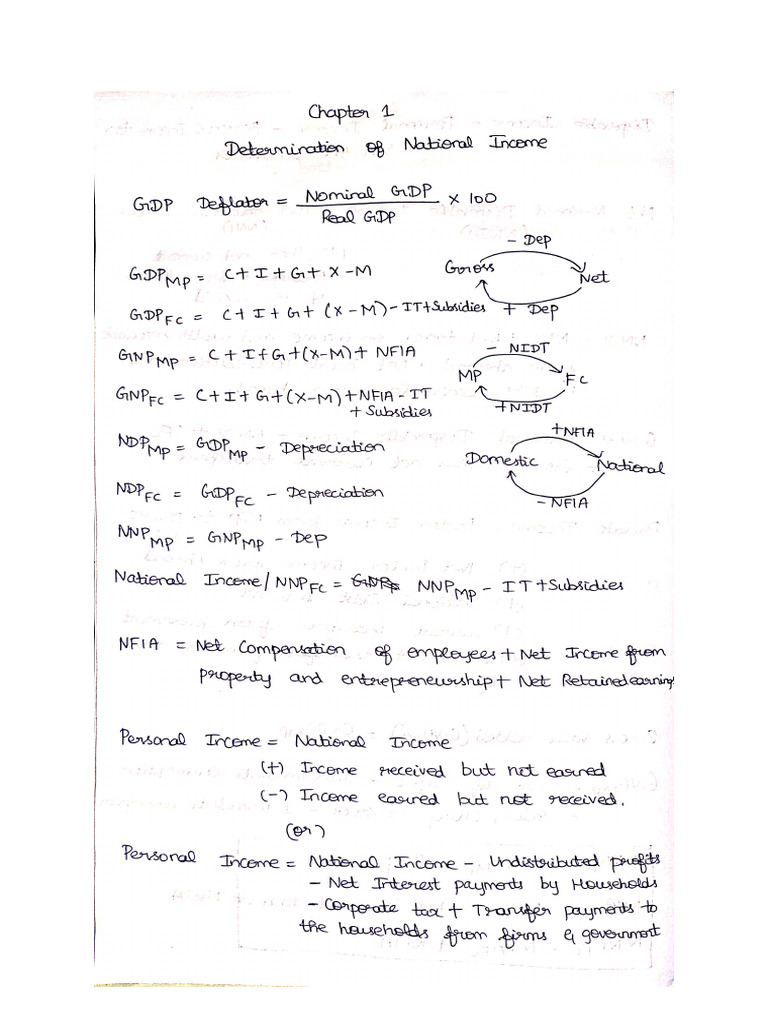 Chapter 1
Determination of National Income
GDP Deflator = Nominal GDP / Real GDP × 100
- Dep
Gross
Net
+ Dep
GDP MP = C + I + G + X - M
GDP FC = C + I + G + (X - M) - IT + Subsidies
GNP MP = C + I + G + (X - M) + NFIA
- NIDT
MP
FC
+NIDT
GNP FC = C + I + G + (X - M) + NFIA - IT
+ Subsidies
+NFIA
Domestic
National
- NFIA
NDP MP = GDP MP - Depreciation
NDP FC = GDP FC - Depreciation
NNP MP = GNP MP - Dep
National Income / NNP FC = NNP MP - IT + Subsidies
NFIA = Net Compensation of employees + Net Income from
property and entrepreneurship + Net Retained earnings
Personal Income = National Income
(+) Income received but not earned
(-) Income earned but not received.
(or)
Personal Income = National Income - Undistributed profits
- Net Interest payments by Households
- Corporate tax + Transfer payments to
the households from firms & government